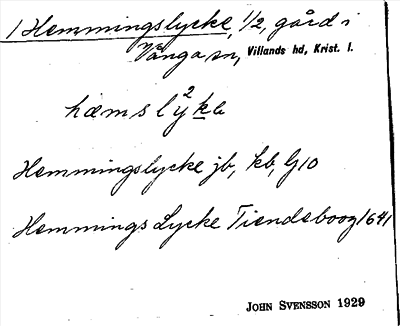 1 Hemmingslycke, 1/2, gård i
Vånga sn, Villands hd, Krist. l.
hæmslẙkə
Hemmingslycke jb, kb, G10
Hemmings Lycke Tiendeboog 1641
JOHN SVENSSON 1929